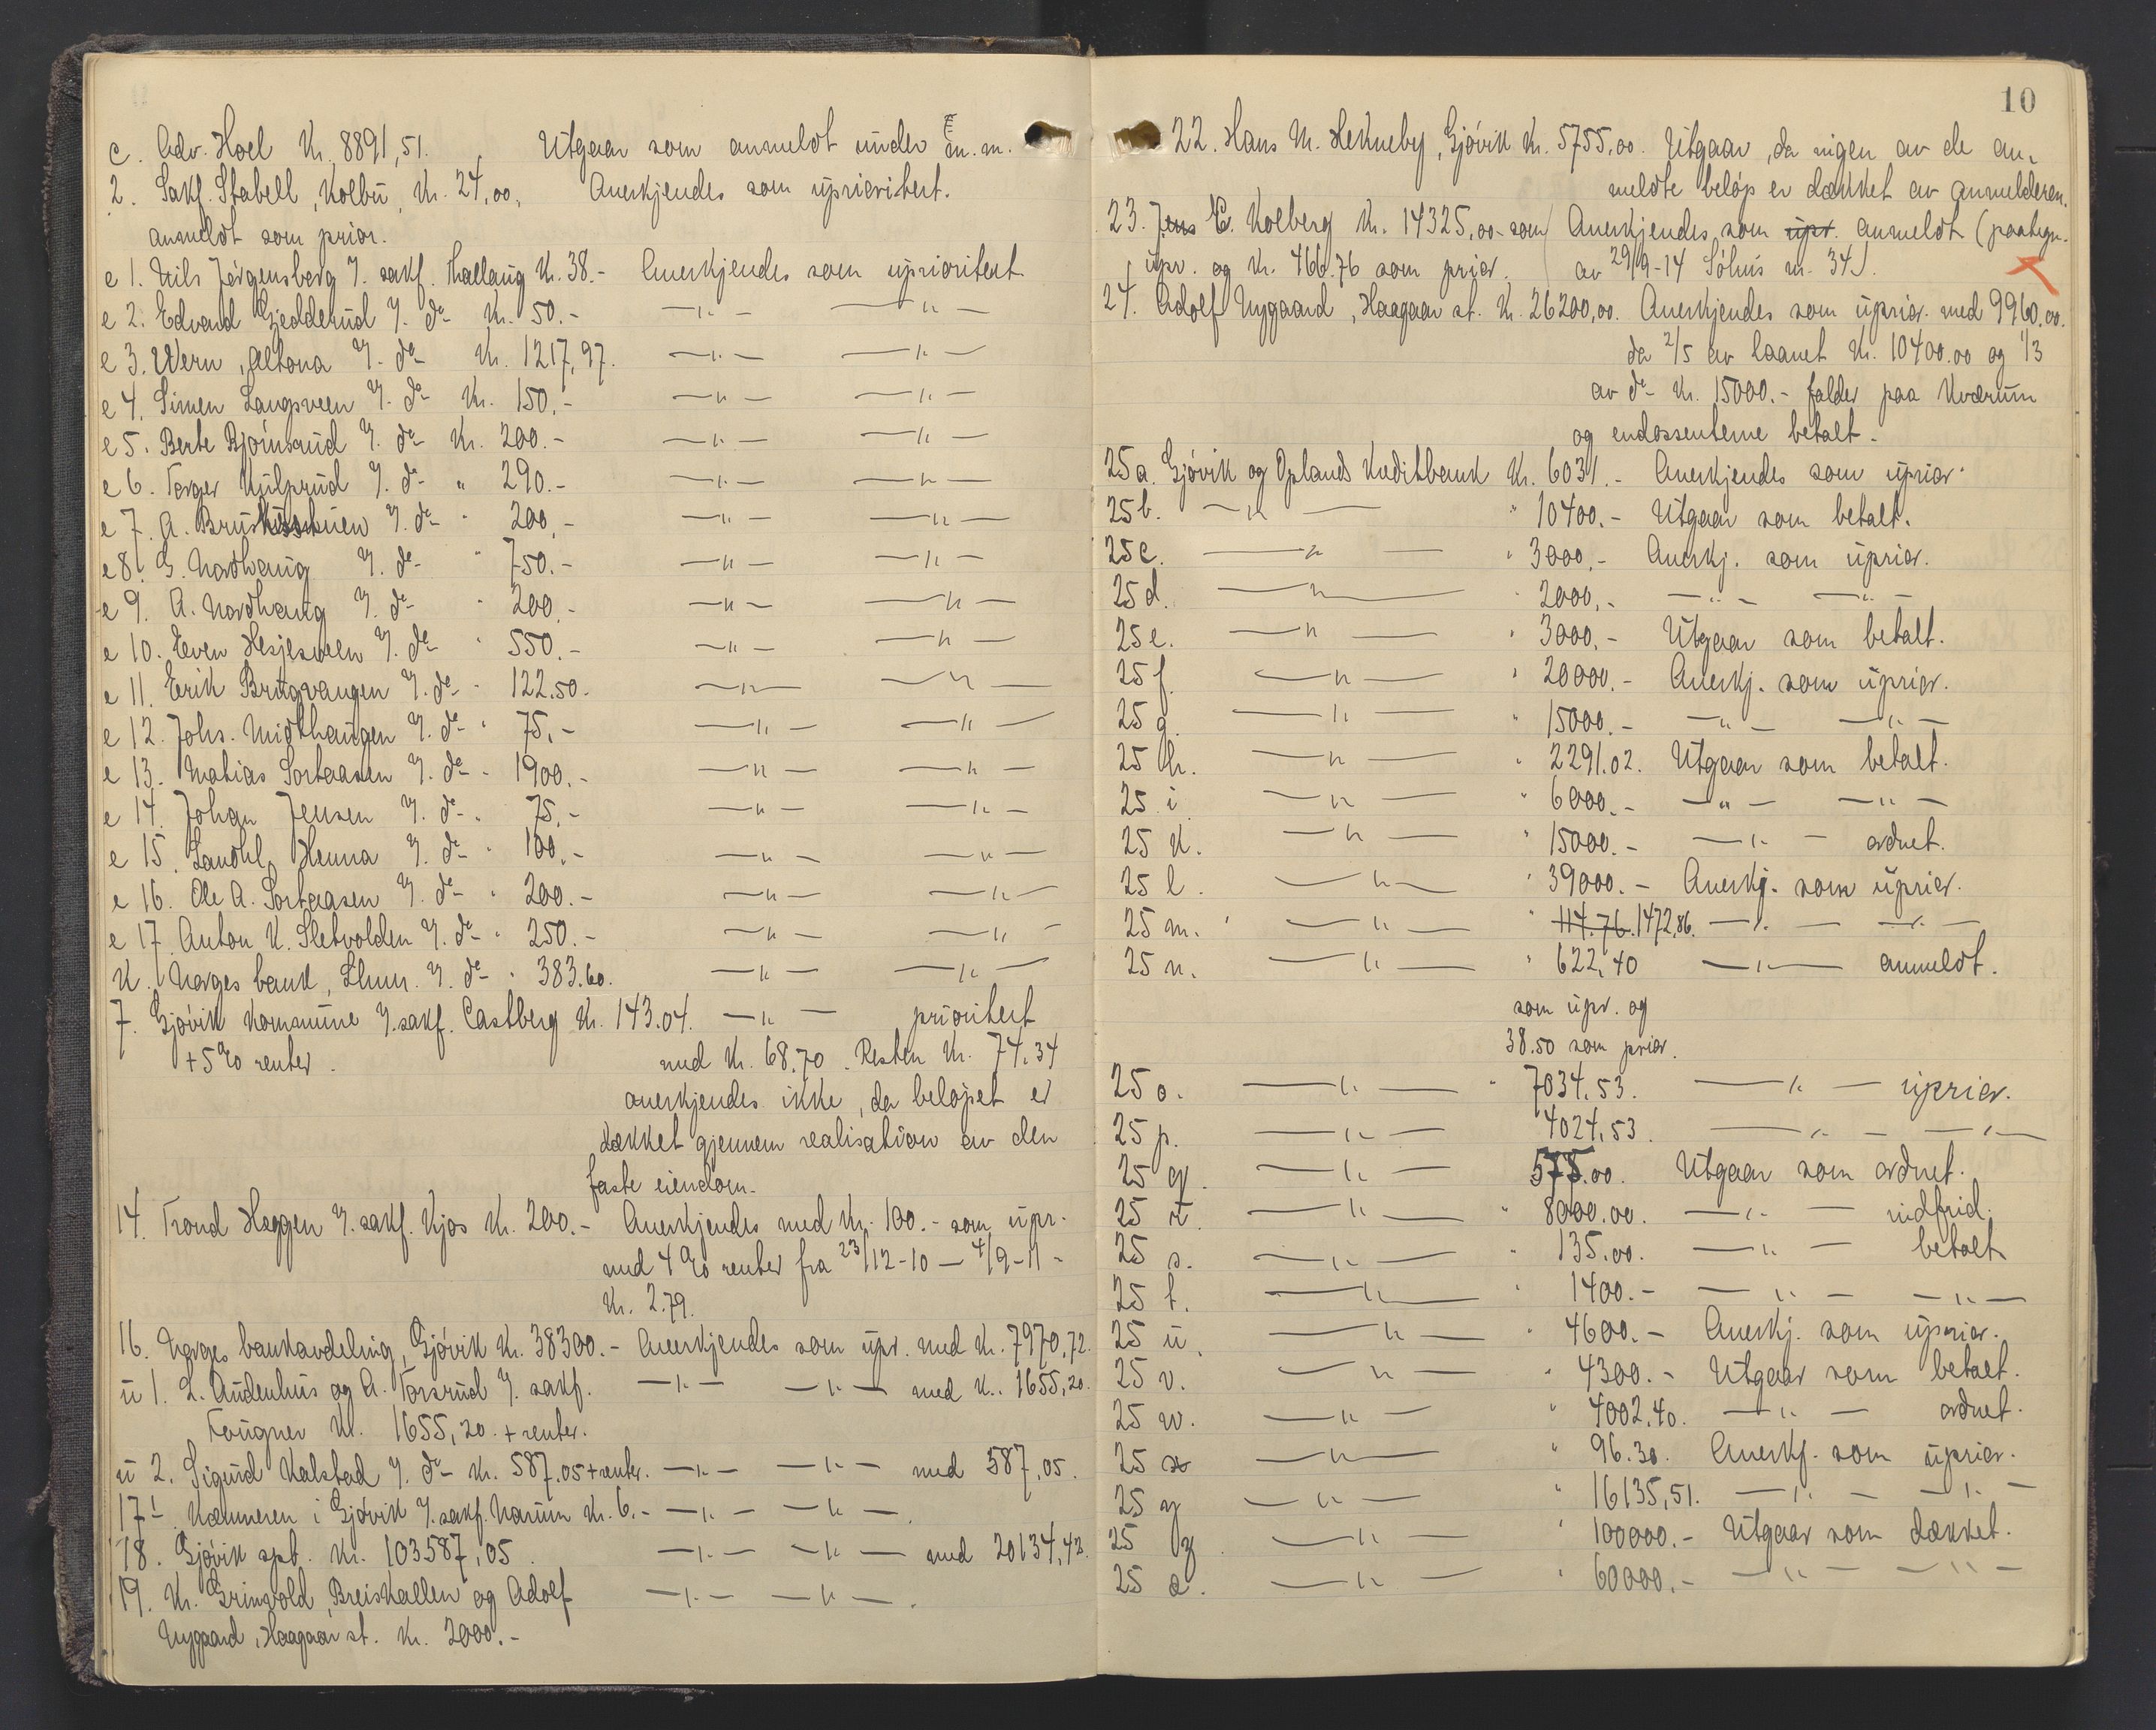 c. Adv. Hoel Kr. 8891,51. Utgaar som anmeldt under m. m.
2. Sakf. Stabell, Kolbu, Kr. 24,00, Anerkjendes som uprioritert.
anmeldt som prior.
e 1. Nils Jörgensberg v. sakf. Thallaug Kr. 38.- Anerkjendes som uprioritert
e 2. Edvard Gjedderud v. do Kr. 50.- —"— —"—
e 3. Wern, Altona v. do Kr. 1217,97. —"— —"—
e 4. Simen Langsveen v. do Kr. 150.- —"— —"—
e 5. Berte Björnsrud v. do Kr. 200.- —"— —"—
e 6. Torger Kulprud v. do " 290.- —"— —"—
e 7. A. v. do " 200,- —"— —"—
e 8. G. Nordhaug v. do " 750.- —"— —"—
e 9. A. Nordhaug v. do " 200.- —"— —"—
e 10. Even Hesjesveen v. do " 550.- —"— —"—
e 11. Erik Brugvangen v. do " 122.50. —"— —"—
e 12. Johs. Midthaugen v. do " 75.- —"— —"—
e 13. Matias Sortaasen v. do " 1900.- —"— —"—
e 14. Johan Jensen v. do " 75.- —"— —"—
e 15. Landhl. Henna v. do " 100.- —"— —"—
e 16. Ole A. Sortaasen v. do " 200.- —"— —"—
e 17. Anton K. Sletvolden v. do " 250.- —"— —"—
K. Norges bank, Lhmr. v. do " 383.60. —"— —"—
7. Gjövik Kommune v. sakf. Castberg Kr. 143.04. —"— prioritert
+ 5% renter. med Kr. 68.70. Resten Kr. 74.34
anerkjendes ikke, da beløpet er
dækket gjennem realisation av den
faste eiendom.
14. Trond Haggen v. sakf. Kjos Kr. 200.- Anerkjendes med Kr. 100.- som upr.
med 4% renter fra 23/12-10 — 4/9-11 -
Kr. 2.79.
16. Norges bankavdeling, Gjövik Kr. 38300.- Anerkjendes som upr. med Kr. 7970,72.
u 1. L. Audenhus og A. Torsrud v. sakf. —"— —"— med K.. 1655,20.
Fougner Kr. 1655,20. + renter.
u 2. Sigurd Kalstad v. do Kr. 587.05 + renter. —"— —"— med 587,05.
17 1. Kæmneren i Gjövik v. sakf. Narum Kr. 6.- —"— —"—.
18. Gjövik spb. Kr. 103587,05. —"— —"— med 20134,42.
19. Kr. Grinvold, Breiskallen og Adolf —"— —"—.
Nygaard, Haagaar st. Kr. 2000.-
10
22. Hans M. Hekneby, Gjövik Kr. 5755,00. Utgaar, da ingen av de an-
meldte beløp er dækket av anmelderen.
23. Jens E. Kolberg Kr. 14325,00 som Anerkjendes som upr. anmeldt (paategn.
upr. og Kr. 466.76 som prior. av 29/9-14 Söhus nr. 34).
24. Adolf Nygaard, Haagaar st. Kr. 26200,00. Anerkjendes som uprior. med 9960.00.
da 2/5 av laanet Kr. 10400.00 og 1/3
av do Kr. 15000.- falder paa Kværum
og endossenterne betalt.
25 a. Gjövik og Oplands Kreditbank Kr. 6031.- Anerkjendes som uprior.
25 b. —"— " 10400.- Utgaar som betalt.
25 c. —"— " 3000.- Anerkj. som uprior.
25 d. —"— " 2000.- —"— —"—
25 e. —"— " 3000.- Utgaar som betalt.
25 f. —"— " 20000.- Anerkj. som uprior.
25 g. —"— " 15000.- —"— —"—
25 h. —"— " 2291.02. Utgaar som betalt.
25 i —"— " 6000.- —"— —"—
25 k. —"— " 15000.- —"— ordnet.
25 l. —"— " 39000.- Anerkj. som uprior.
25 m. —"— " 114.76. 1472,86. —"— —"—
25 n. —"— " 622,40 —"— anmeldt.
som upr. og
38.50 som prior.
25 o. —"— " 7034.53. —"— uprior.
25 p. —"— 4024,53. —"— —"—
25 q. —"— 575.00. Utgaar som ordnet.
25 r. —"— " 8000.00. —"— indfrid.
25 s. —"— " 135.00. —"— betalt
25 t. —"— " 1400.- —"— —"—
25 u. —"— " 4600.- Anerkj. som uprior.
25 v. —"— " 4300.- Utgaar som betalt.
25 w. —"— " 4002.40. —"— ordnet.
25 x —"— " 96.30. Anerkj. som uprior.
25 y —"— " 16135,51. —"— —"—
25 z. —"— " 100000.- Utgaar som dækket.
25 æ. —"— " 60000.- —"— —"—